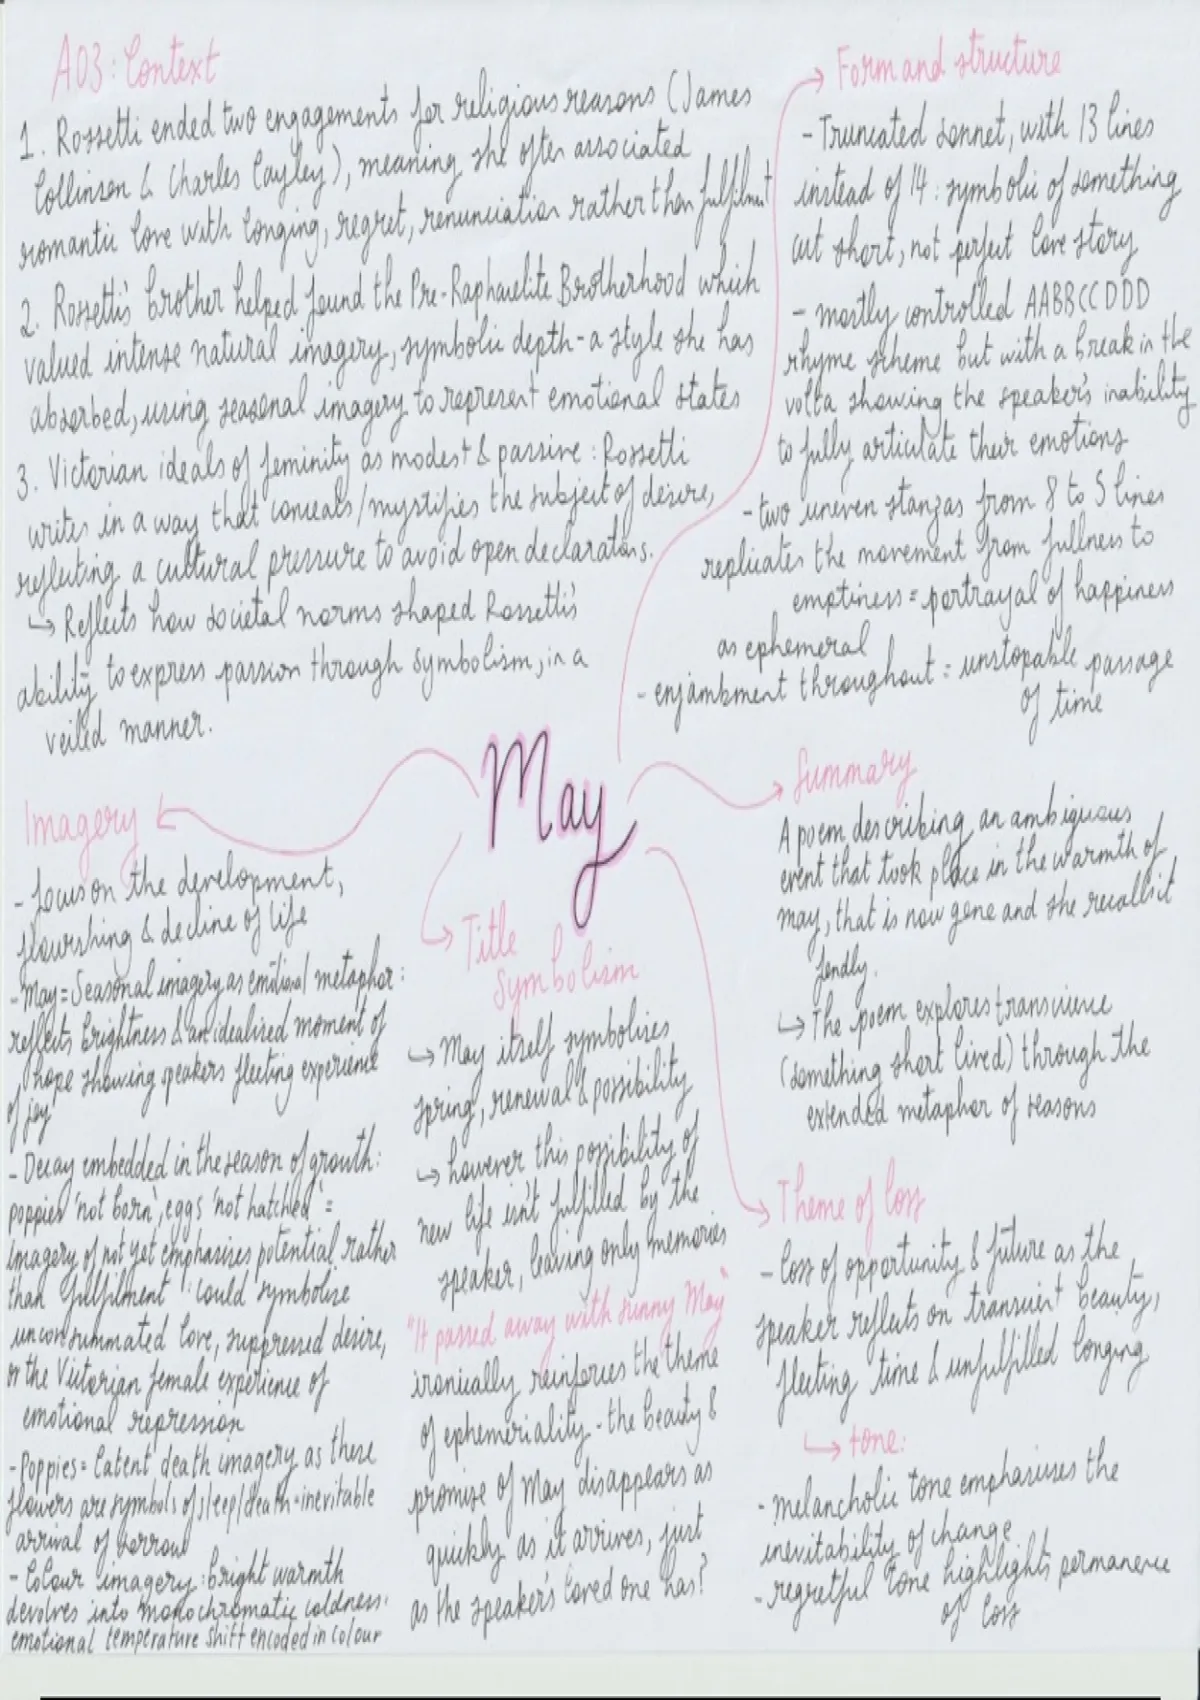 A03: Context
1. Rossetti ended two engagements for religious reasons (James
Collinson & Charles Cayley), meaning she often associated
romantic love with longing, regret, renunciation rather than fulfilment
2. Rossetti's brother helped found the Pre-Raphaelite Brotherhood which
valued intense natural imagery, symbolic depth - a style she has
absorbed, using seasonal imagery to represent emotional states
3. Victorian ideals of feminity as modest & passive: Rossetti
writes in a way that conceals/mystifies the subject of desire,
reflecting a cultural pressure to avoid open declarations.
↳ Reflects how societal norms shaped Rossetti's
ability to express passion through symbolism, in a
veiled manner.
Form and structure
- Truncated sonnet, with 13 lines
instead of 14: symbolic of something
cut short, not perfect love story
- mostly controlled AABBCCDDD
rhyme scheme but with a break in the
volta showing the speaker's inability
to fully articulate their emotions
- two uneven stanzas from 8 to 5 lines
replicates the movement from fullness to
emptiness = portrayal of happiness
as ephemeral
- enjambment throughout = unstoppable passage
of time
May
Summary
A poem describing an ambiguous
event that took place in the warmth of
may, that is now gone and she recalls it
fondly.
↳ The poem explores transcience
(something short lived) through the
extended metaphor of seasons
Imagery
- focus on the development,
flourishing & decline of life
- May = Seasonal imagery as emotional metaphor:
reflects brightness & an idealised moment of
hope showing speakers fleeting experience
of joy
- Decay embedded in the season of growth:
poppies 'not born', eggs 'not hatched' =
imagery of not yet emphasises potential rather
than fulfilment: could symbolise
unconsummated love, suppressed desire,
or the Victorian female experience of
emotional repression
- Poppies = latent death imagery as these
flowers are symbols of sleep/death = inevitable
arrival of sorrow
- Colour imagery: bright warmth
devolves into monochromatic coldness:
emotional temperature shift encoded in colour
Title
Symbolism
↳ May itself symbolises
spring, renewal & possibility
↳ however this possibility of
new life isn't fulfilled by the
speaker, leaving only memories
"It passed away with sunny May"
ironically reinforces the theme
of ephemeriality - the beauty &
promise of May disappears as
quickly as it arrives, just
as the speaker's loved one has?
Theme of loss
- loss of opportunity & future as the
speaker reflects on transient beauty,
fleeting time & unfulfilled longing
↳ tone:
- melancholic tone emphasises the
inevitability of change
- regretful tone highlights permanence
of loss